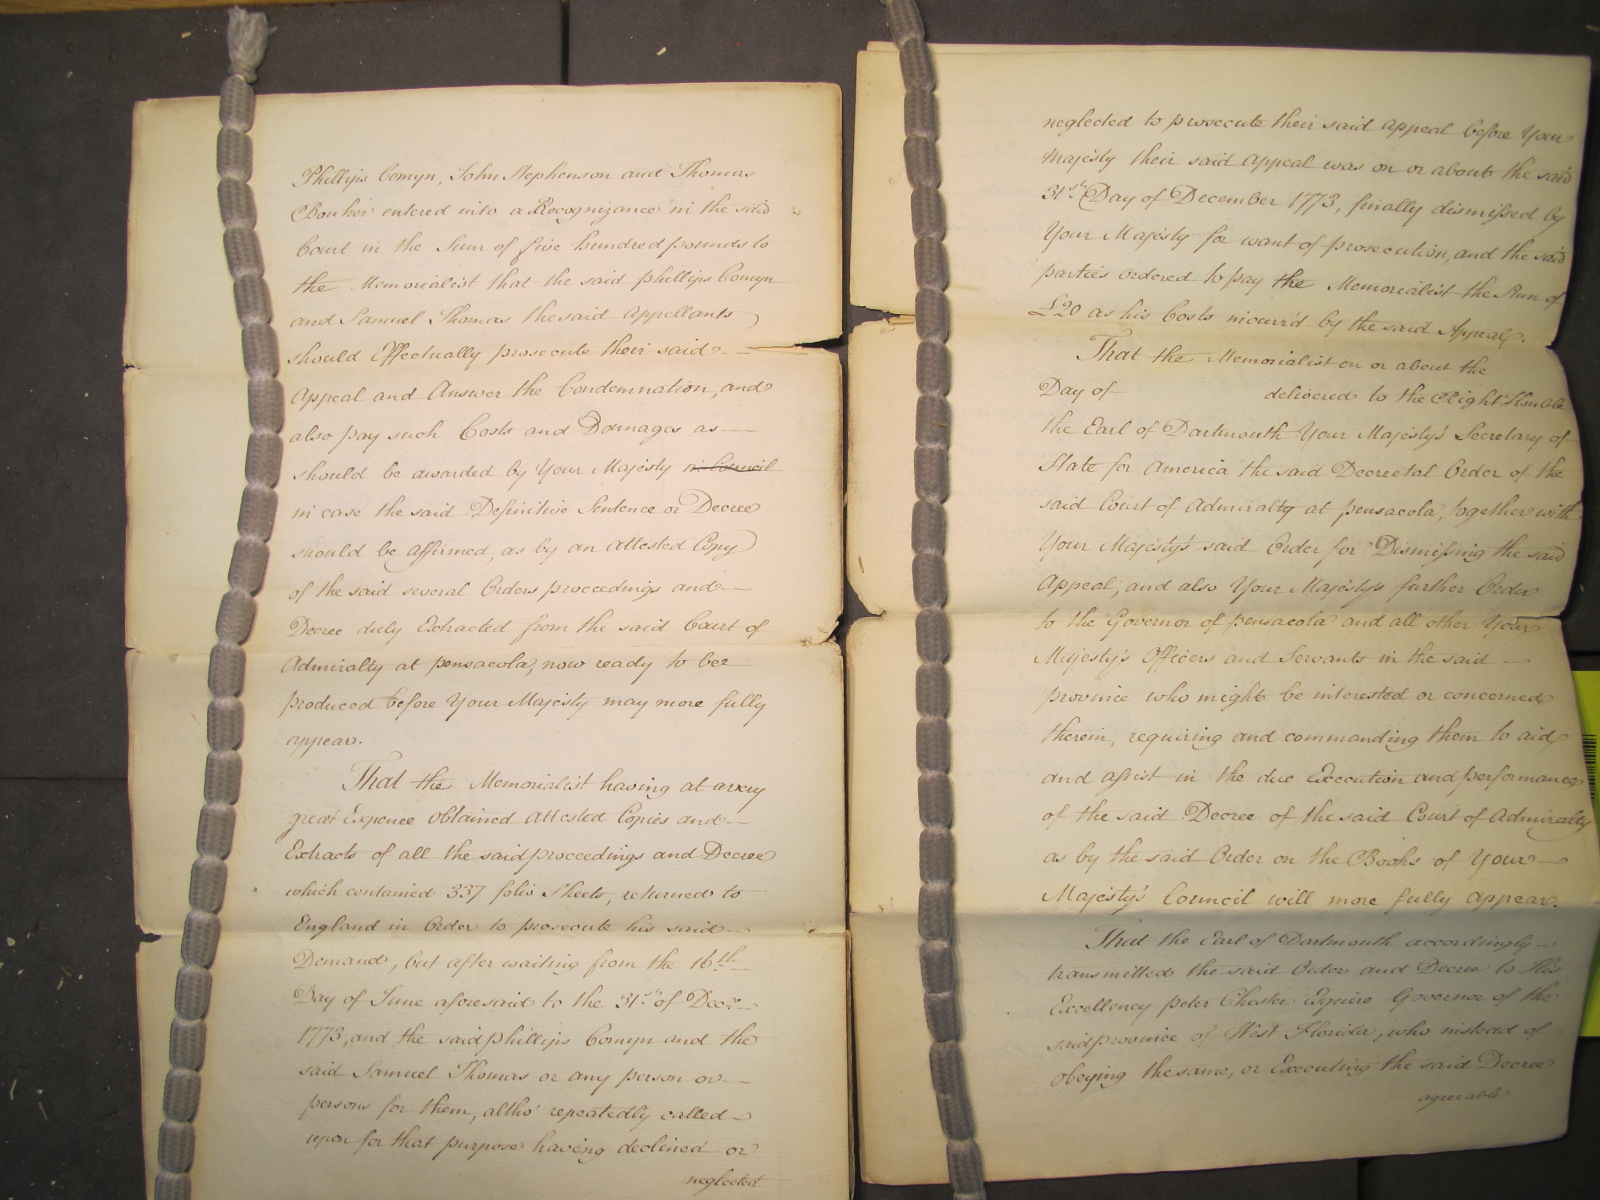 Phillips Comyn, John Stephenson and Thomas
Bouker entered into a Recognizance in the said
Court in the Sum of five hundred pounds to
the Memorialist that the said phillips Comyn
and Samuel Thomas the said Appellants
should Effectually prosecute their said
Appeal and Answer the Condemnation, and
also pay such Costs and Damages as
should be awarded by Your Majesty in Council
in case the said Definitive Sentence or Decree
should be affirmed, as by an attested Copy
of the said several Orders proceedings and
Decree duly Extracted from the said Court of
Admiralty at pensacola, now ready to bee
produced before Your Majesty may more fully
appear.
That the Memorialist having at a very
great Expence obtained attested Copies and
Extracts of all the said proceedings and Decree
which contained 337 folio Sheets, returned to
England in Order to prosecute his said
Demand, but after waiting from the 16th
Day of June aforesaid to the 31st of Decr.
1773, and the said phillips Comyn and the
said Samuel Thomas or any person or
persons for them, altho' repeatedly called
upon for that purpose having declined or
neglected
neglected to prosecute their said Appeal before Your
Majesty their said Appeal was on or about the said
31st. Day of December 1773, finally dismissed by
Your Majesty for want of prosecution, and the said
parties ordered to pay the Memorialist the Sum of
£20 as his Costs incurr'd by the said Appeal.
That the Memorialist on or about the
Day of delivered to the Right Honble
the Earl of Dartmouth Your Majesty's Secretary of
State for America the said Decreetal Order of the
said Court of Admiralty at pensacola, together with
Your Majesty's said Order for Dismissing the said
Appeal, and also Your Majesty's further Order
to the Governor of pensacola and all other Your
Majesty's Officers and Servants in the said
province who might be interested or concerned
therein, requiring and commanding them to aid
and assist in the due Execution and performance
of the said Decree of the said Court of Admiralty
as by the said Order on the Books of Your
Majesty's Council will more fully appear.
That the Earl of Dartmouth accordingly
transmitted the said Order and Decree to His
Excellency peter Chester Esquire Governor of the
said province of West Florida, who instead of
obeying the same, or Executing the said Decree
agreeable